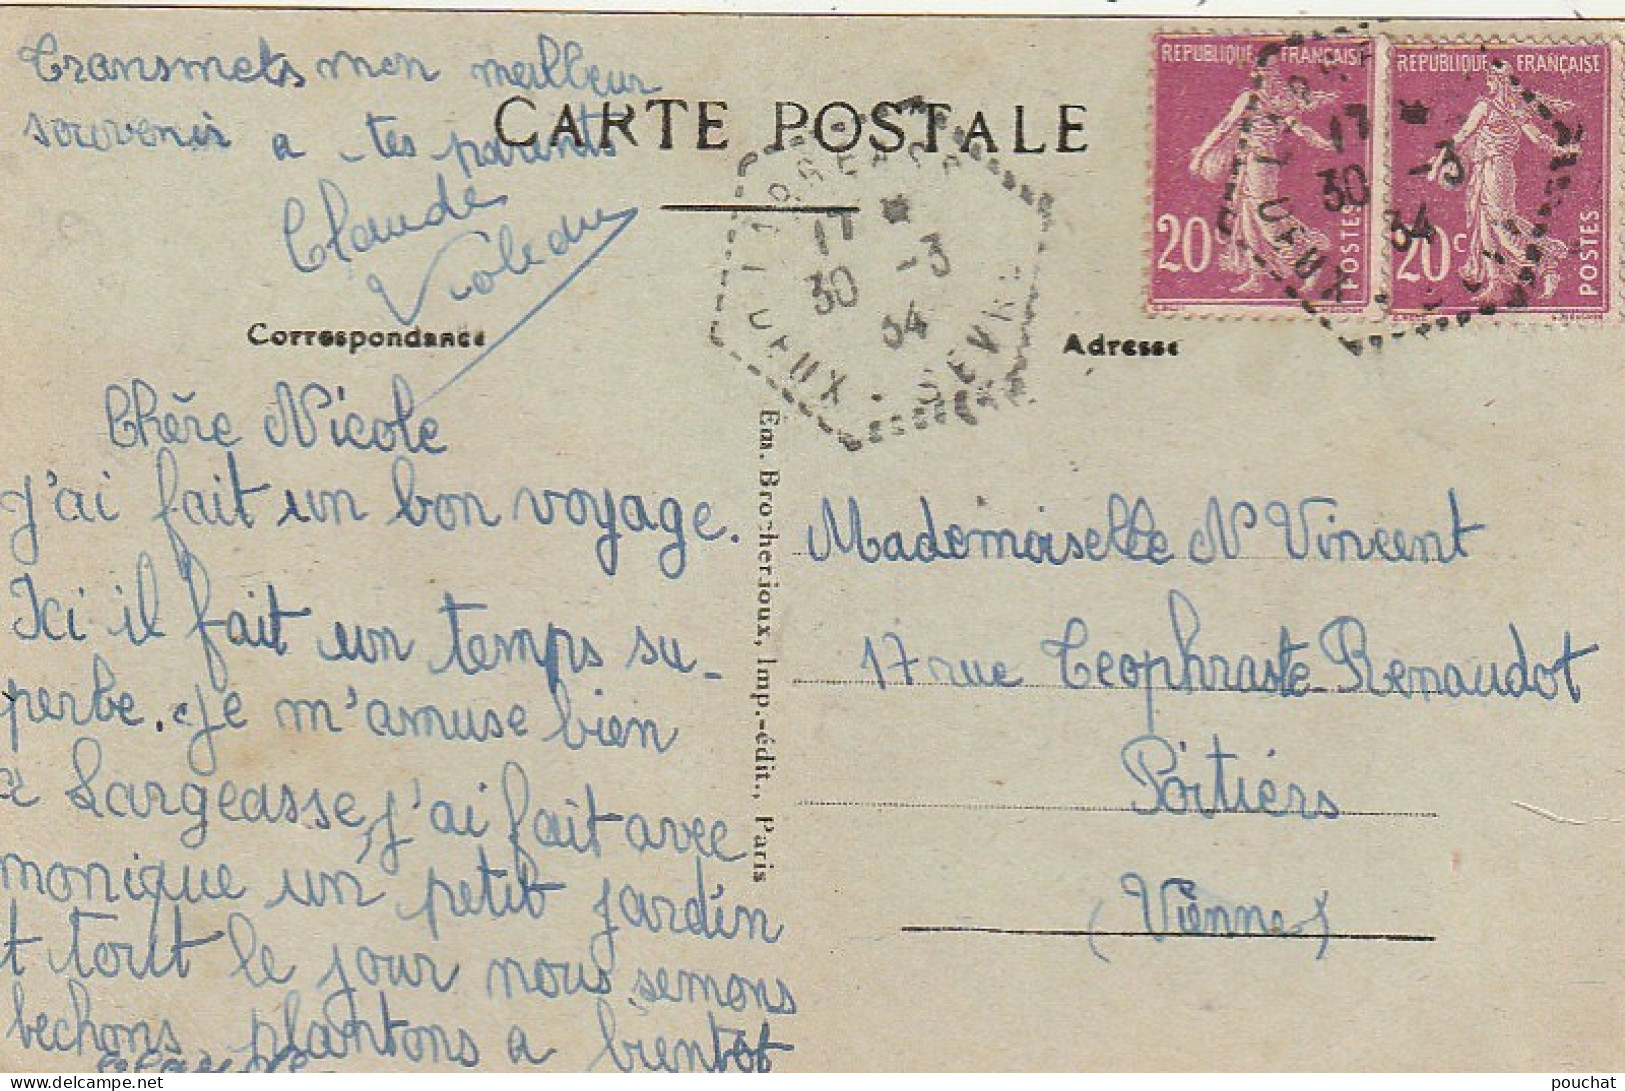 Transmets mon meilleur
souvenir a tes parents
Claude
CARTE POSTALE
REPUBLIQUE FRANÇAISE
20c POSTES
REPUBLIQUE FRANÇAISE
20c POSTES
17 *
30 -3
34
17 *
30 -3
34
Correspondance
Adresse
Chère Nicole
J'ai fait un bon voyage.
Ici il fait un temps su-
perbe. Je m'amuse bien
a Largeasse, j'ai fait avec
monique un petit jardin
et tout le jour nous semons
bechons plantons a bientot
Em. Brocherioux, Imp.-édit., Paris
Mademoiselle N Vincent
17 rue Teophraste-Renaudot
Poitiérs
(Viènne)
pouchat